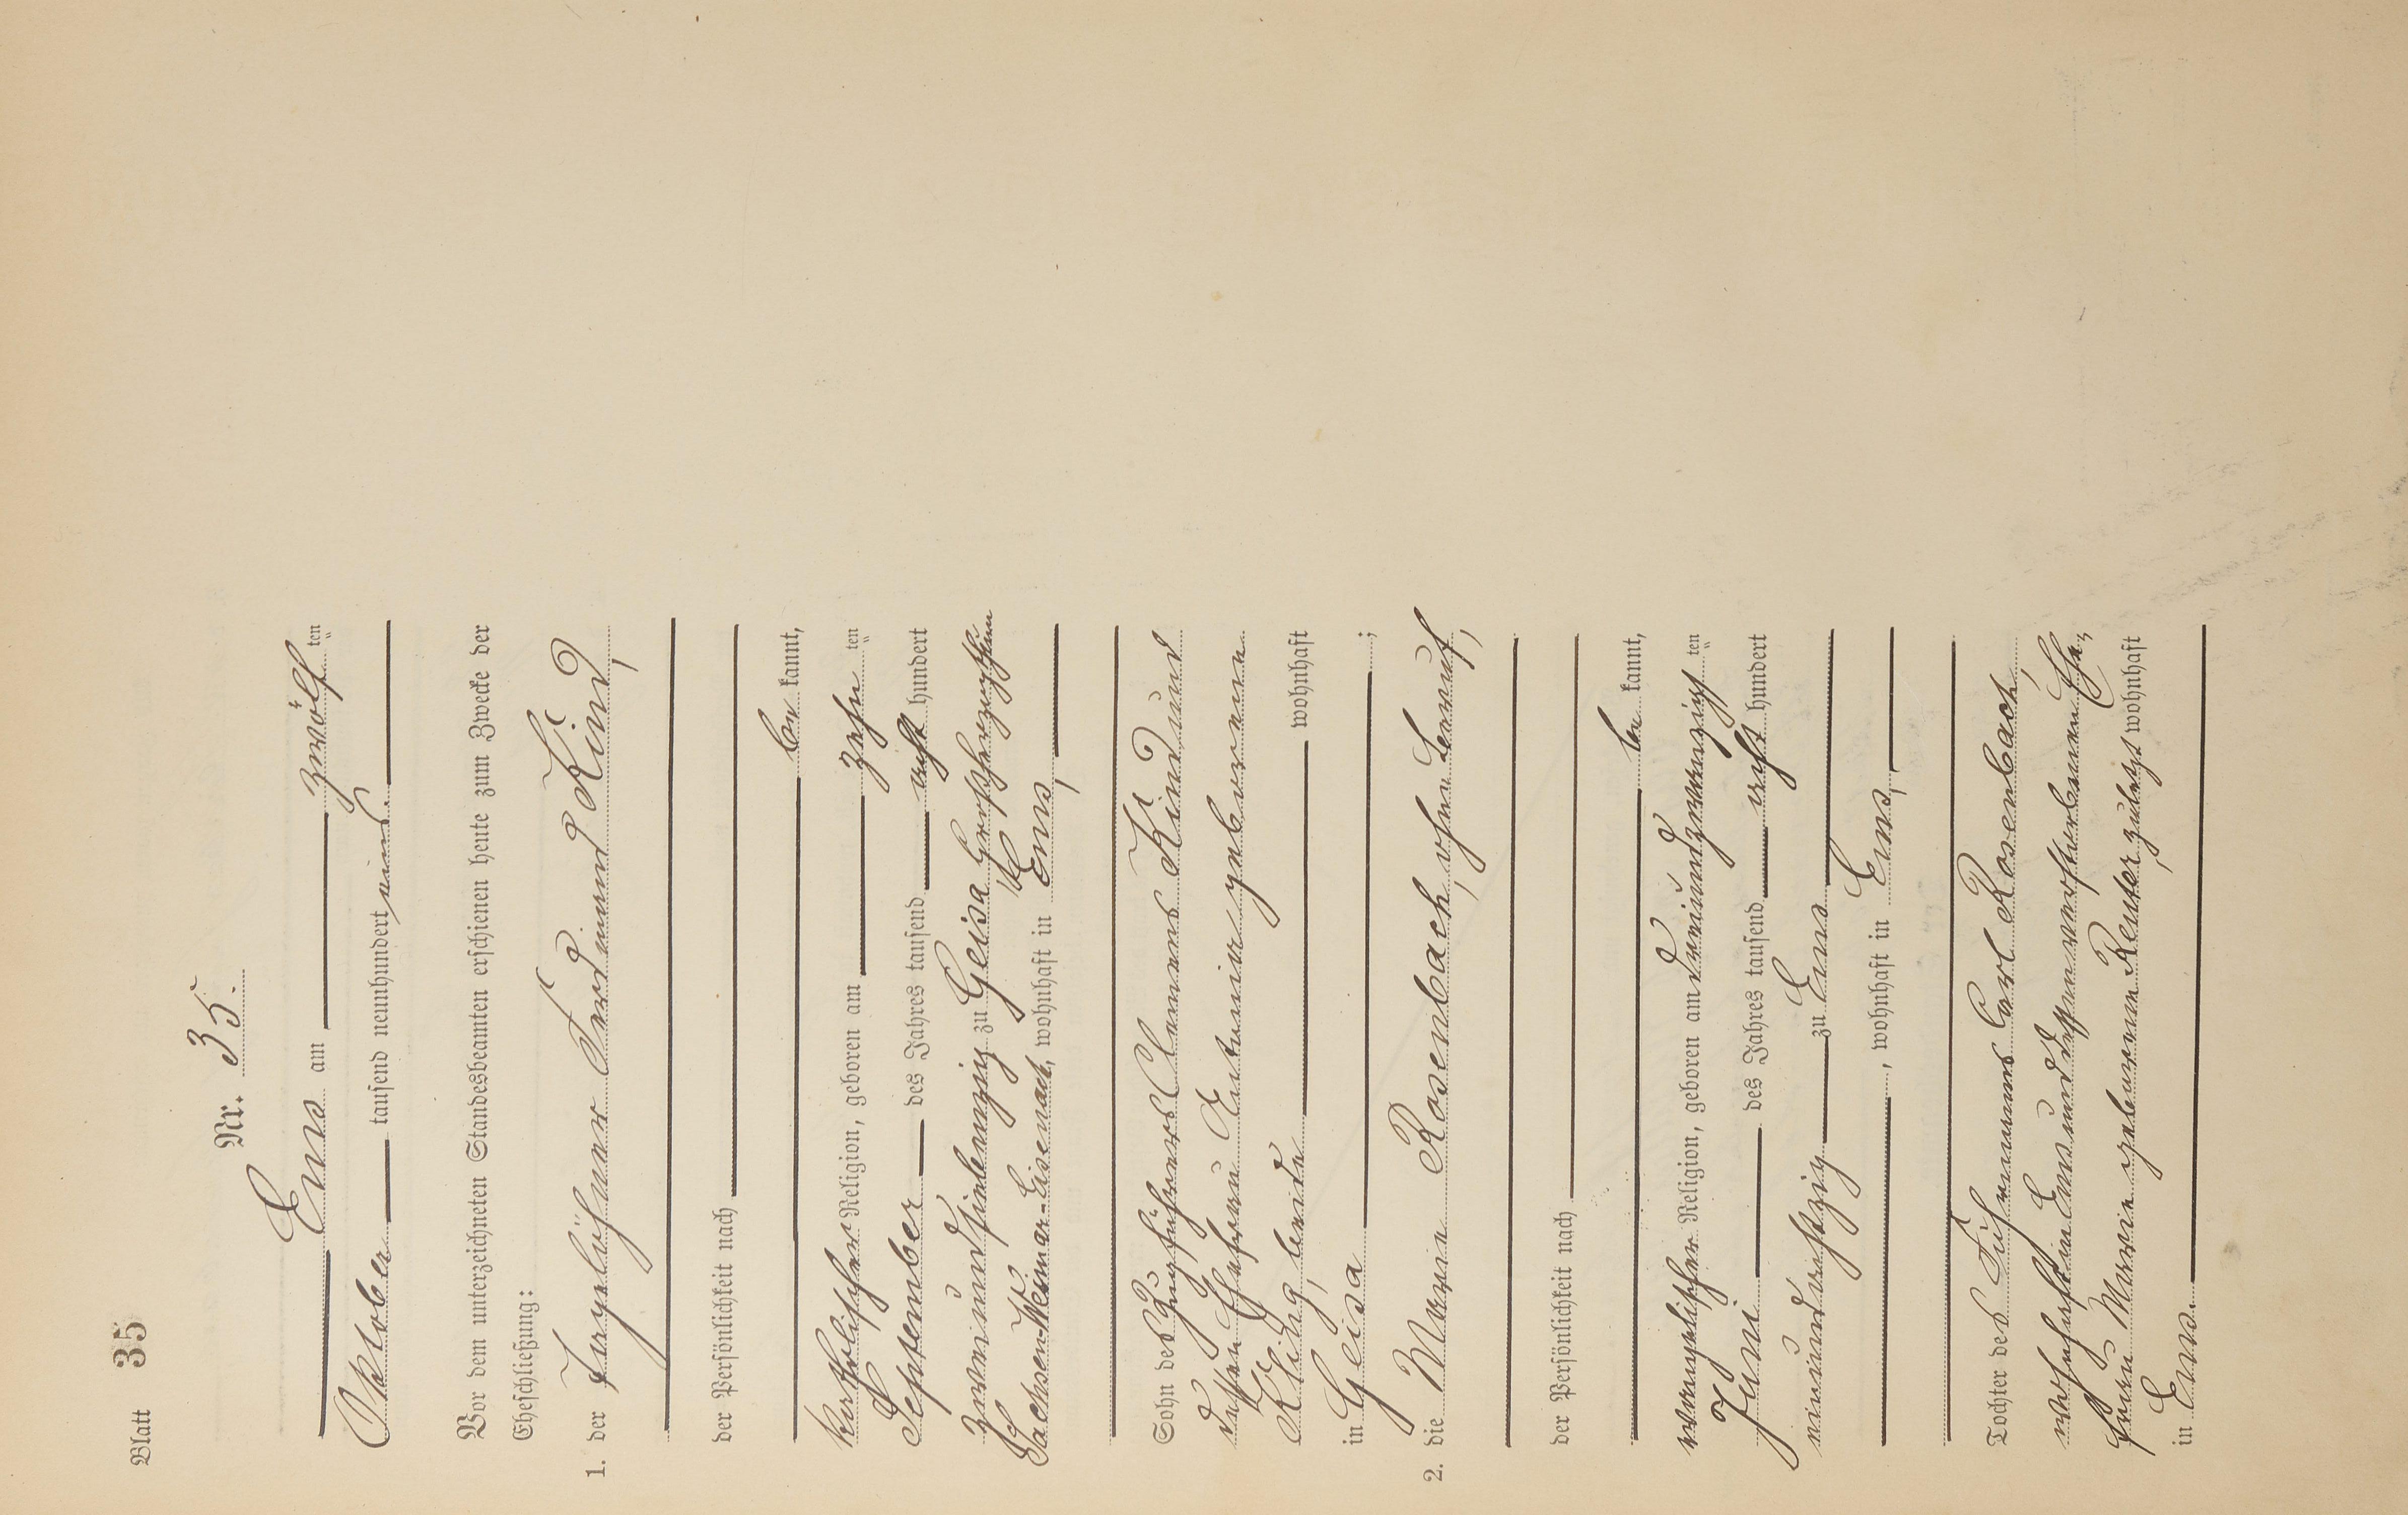 Blatt 35
Nr. 35.
Ems am zwölf ten
Oktober tausend neunhundert eins.
Vor dem unterzeichneten Standesbeamten erschienen heute zum Zwecke der
Eheschließung:
1. der Tagelöhner Ferdinand Kind,
der Persönlichkeit nach
be kannt,
katholischer Religion, geboren am zehn ten
September des Jahres tausend acht hundert
zweiundsiebenzig zu Geisa Großherzogthum
Sachsen-Weimar-Eisenach, wohnhaft in Ems,
Sohn des Clemens Kind und
dessen Ehefrau geborenen
beide wohnhaft
in Geisa ;
2. die Marie Rosenbach, ohne Beruf,
der Persönlichkeit nach
be kannt,
evangelischer Religion, geboren am dreiundzwanzigst ten
Juni des Jahres tausend acht hundert
neunundachtzig zu Ems
, wohnhaft in Ems,
Tochter des Fuhrmanns Carl Rosenbach,
wohnhaft in Ems und dessen verstorbenen Ehe-
frau Marie geborenen Reuter, zuletzt wohnhaft
in Ems.